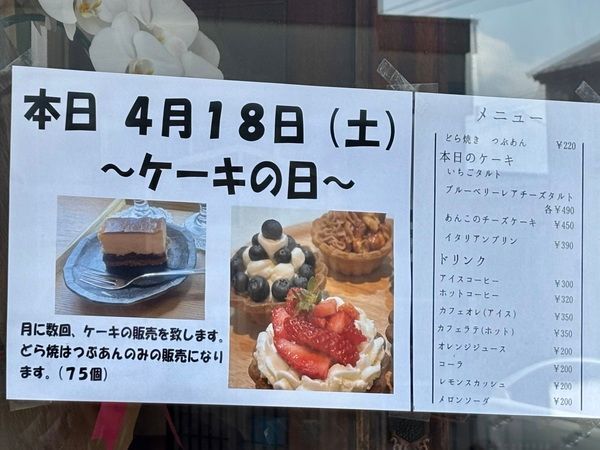 本日 4月18日(土)
～ケーキの日～
月に数回、ケーキの販売を致します。
どら焼はつぶあんのみの販売になり
ます。(75個)
メニュー
どら焼き つぶあん ¥220
本日のケーキ
いちごタルト
ブルーベリーレアチーズタルト
各¥490
あんこのチーズケーキ ¥450
イタリアンプリン ¥390
ドリンク
アイスコーヒー ¥300
ホットコーヒー ¥320
カフェオレ(アイス) ¥350
カフェラテ(ホット) ¥350
オレンジジュース ¥200
コーラ ¥200
レモンスカッシュ ¥200
メロンソーダ ¥200